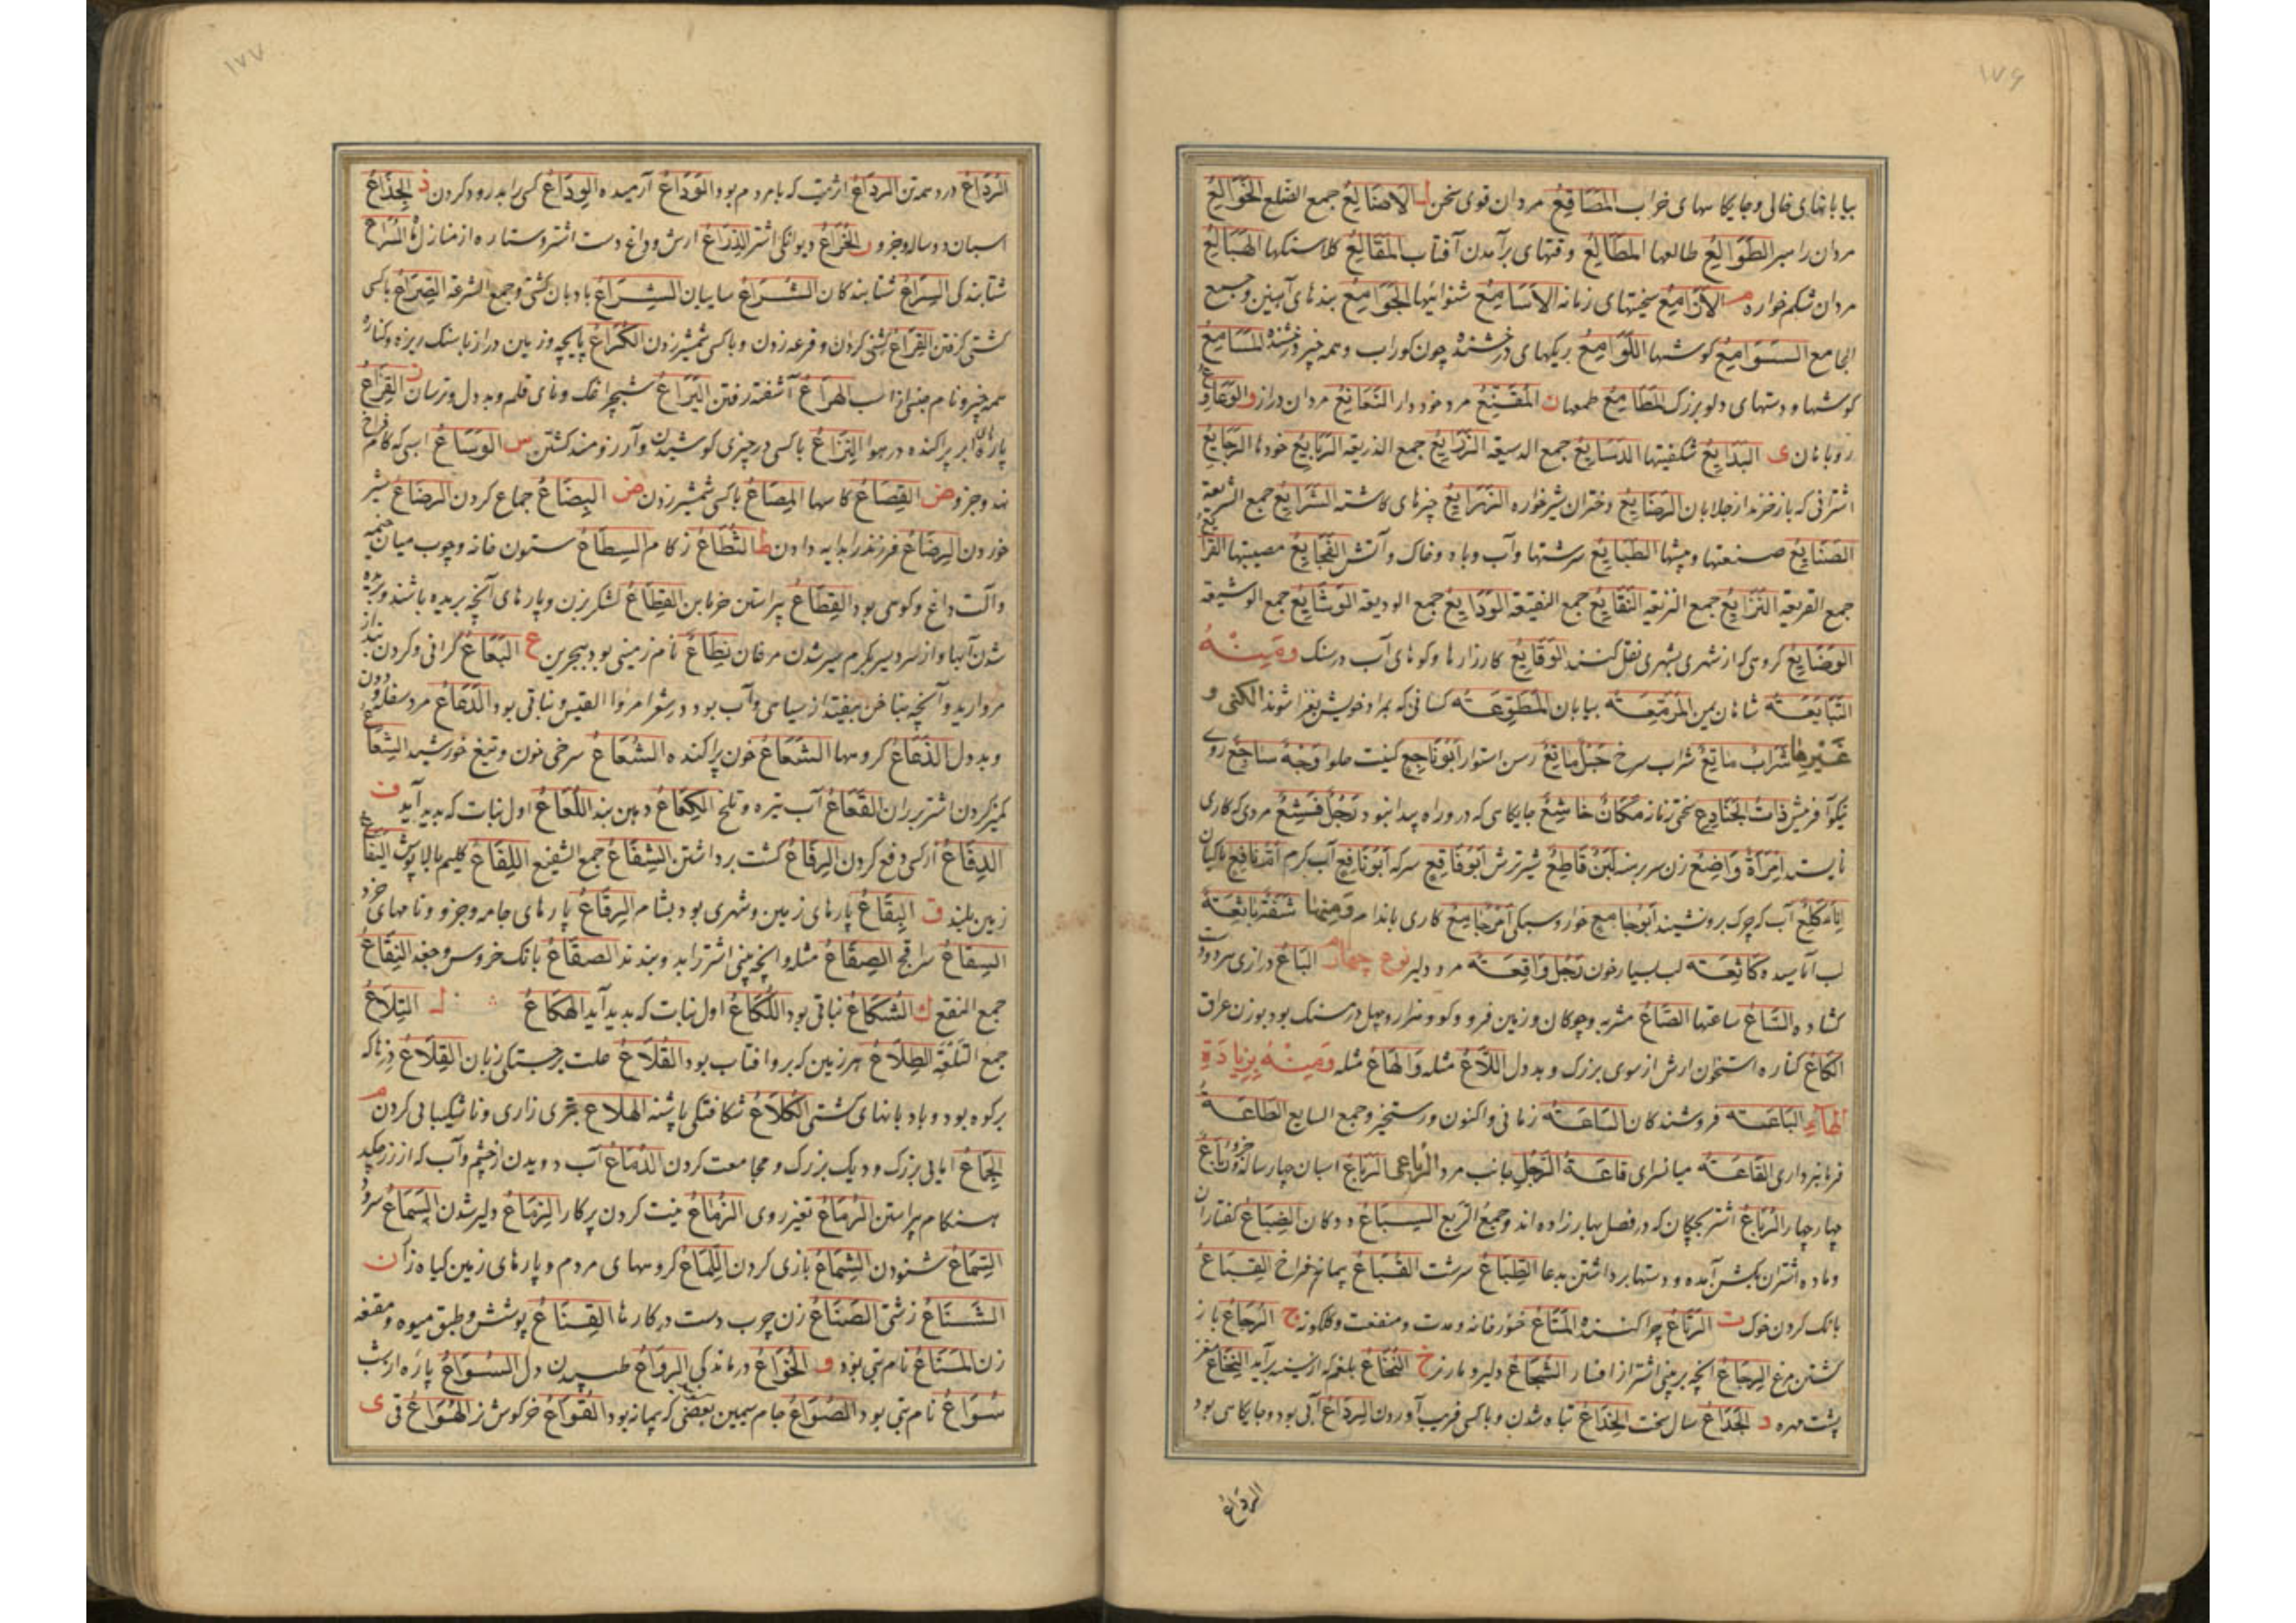 ۱۷۶
بیابانهای خالی و جایکاسهای خراب المَصَاقِعُ مردان قوی سخن ل الاَضَالِعُ جمع الضلع الخَوَالِعُ
مردان رامبر الطَوَالِعُ طالعها المَطَالِعُ وقتهای برآمدن آفتاب المَقَالِعُ کلاسنکها الهَبَالِعُ
مردان شکم خواره م الاَزَامِعُ سختیهای زمانه الاَسَامِعُ شنوائیها الجَوَامِعُ بندهای آهنین وجمع
الجامع السَوَامِعُ کوشها اللَوَامِعُ ریکهای درخشنده چون کوراب وهمه خیر درخشنده المَسَامِعُ
کوشها و دستهای دلو بزرک المَطَامِعُ طمعها ن المُقَنِعُ مرد خود دار النَعَانِعُ مردان دراز و الوَعَاوِعُ
روباهان ی البَدَایِعُ شکفتیها الدَسَایِعُ جمع الدسیعه الذَرَایِعُ جمع الذریعه الرَبَایِعُ خودها الرَجَایِعُ
اشترانی که بازخرند از جلابان الرَضَایِعُ دختران شیرخواره الزَرَایِعُ چیزهای کاشته الشَرَایِعُ جمع الشریعة
الصَنَایِعُ صنعتها و پیشها الطَبَایِعُ سرشتها وآب وباد وخاک وآتش الفَجَایِعُ مصیبتها القَرَایِعُ
جمع القریعه النَزَایِعُ جمع النزیعه النَقَایِعُ جمع النقیعه الوَدَایِعُ جمع الودیعه الوَشَایِعُ جمع الوشیعه
الوَضَایِعُ کروهی که از شهری بشهری نقل کنند الوَقَایِعُ کارزارها و کوهای آب در سنک وَمِنْهُ
التَبَابَعَة شاهان یمن المَرْمَعَة بیابان المُطَّوِعَة کسانی که بمراد خویش بغزا شوند الکنی و
غَیْرِها شَرَابٌ مَاتِعٌ شراب سرخ حَبْلٌ مَاتِعٌ رسن استوار اَبُو نَاجِعٍ کنیت حلوا وَجْهٌ سَاجِعٌ روی
نیکو آفرینش ذَاتُ الجَنَادِعِ سختی زمانه مَکَانٌ خَاشِعٌ جایکاهی که در و راه پیدا نبود رَجُلٌ مردی که کاری
نایسته اِمْرَاَةٌ وَاضِعٌ زن سر برهنه لَبَنٌ قَاطِعٌ شیر ترش اَبُو فَاقِعٍ سرکه اَبُو نَافِعٍ آب کرم ماکیان
آب که چرک برو نشیند اَبُو جَامِعٍ خوار و سبکی اَمْرٌ جَامِعٌ کاری باندام وَمِنْهَا شَفَةٌ بَاثِعَة
لب آماسیده کَاثِعَة لب بسیار خون رَجُلٌ وَاقِعَة مرد دلیر نوع چهارم البَاعُ درازی سر دو دست
کشاده السَّاعُ ساعتها الصَّاعُ مشربه و چوکان و زمین فرو و کو و هزار و چهل درم سنک بود بوزن عراق
الکَاعُ کناره استخوان ارش از سوی بزرک و بددل اللَّاعُ مثله وَالهَاعُ مثله وَمِنْهُ بِزِیَادَةِ
الهَاءِ البَاعَة فروشندکان السَّاعَة زمانی و اکنون و رستخیز و جمع السایع الطَاعَة
فرمانبرداری القَاعَة میانسرای قَاعَةُ الرَجُلِ بجانب مرد الرباعی الرَبَاعُ اسبان چهار ساله
چهار چهار الرُبَاعُ اشتر بچکان که در فصل بهار زاده اند و جمع الرُبَع السِبَاعُ ددکان الضِبَاعُ کفتاران
وماده اشتران بکشن آمده و دستها برداشتن بدعا الطِبَاعُ سرشت القُبَاعُ پیمانه فراخ القِبَاعُ
بانک کردن خوک ت الرِتَاعُ چراکننده المَتَاعُ خنور خانه و مدت و منفعت و کلکونه ج الرُجَاعُ باز
کشتن مرغ الرِجَاعُ آنچه بر بینی اشتر از افسار الشُجَاعُ دلیر و مار نر خ النُخَاعُ بلغم که از سینه برآید النِخَاعُ مغز
پشت مهره د الجَدَاعُ سال سخت الخِدَاعُ تباه شدن و باکسی فریب آوردن الرِدَاعُ آبی بود و جایکاهی بود
الرُدَاعُ
۱۷۷
الرُدَاعُ درد همه تن الرِدَاعُ اثریست که بامردم بود الوَدَاعُ آرمیده الوِدَاعُ کسی را بدرود کردن ذ الجِذَاعُ
اسبان دو ساله وجزو ر الخُرَاعُ دیوانکی اشتر الذِرَاعُ ارش و داغ دست اشتر و ستاره از منازل ماه السُرَاعُ
شتابندکی السِرَاعُ شتابندکان الشُرَاعُ سایبان الشِرَاعُ بادبان کشتی وجمع الشرعة الصِرَاعُ باکسی
کشتی کرفتن القِرَاعُ کشنی کردن و قرعه زدن و باکسی شمشیر زدن الکُرَاعُ پایچه و زمین دراز باسنک ریزه و کناره
همه چیز و نام جنسی از اسب الهُرَاعُ آشفته رفتن الیَرَاعُ شبچراغک و نای قلم و بددل و ترسان ز القَزَاعُ
پارهای ابر پراکنده در هوا النِزَاعُ باکسی در چیزی کوشیدن و آرزومند کشتن س الوَسَاعُ اسبی که کام فراخ
نهد وجزو ص القِصَاعُ کاسها المِصَاعُ باکسی شمشیر زدن ض البِضَاعُ جماع کردن الرَضَاعُ شیر
خوردن الرِضَاعُ فرزند را بدایه دادن ط الثُطَاعُ زکام السِطَاعُ ستون خانه و چوب میان خیمه
وآلت داغ و کوهی بود القِطَاعُ پیراستن خرما بن القُطَّاعُ لشکر زن و پارهای آنچه بریده باشند و بریده
شدن آبها و از سردسیر بکرم سیر شدن مرغان نِطَاعُ نام زمینی بود ببحرین ع البَعَاعُ کرانی و کردن بند از
مروارید و آنچه بناخن بیفتد از سیاهی و آب بود در شعر امرؤا القیس و نباتی بود الدَعَاعُ مرد سفله و دون
وبددل الذَعَاعُ کروهها الشَعَاعُ خون پراکنده الشُعَاعُ سرخی خون و تیغ خورشید الشِعَاعُ
کمیز کردن اشتر بر ران القُعَاعُ آب تیره و تلخ الکِعَاعُ دهن بند اللُعَاعُ اول نبات که پدید آید ف
الدِفَاعُ از کسی دفع کردن الرِفَاعُ کشت برداشتن الشِفَاعُ جمع الشفیع اللِفَاعُ کلیم بالا پوش الیَفَاعُ
زمین بلند ق البِقَاعُ پارهای زمین و شهری بود بشام الرِقَاعُ پارهای جامه وجزو و نامهای خرد
السِقَاعُ سراقج الصِقَاعُ مثله و آنچه بینی اشتر را بدو بندند الصُقَاعُ بانک خروس و جغد النِقَاعُ
جمع النقع ك الشُکَاعُ نباتی بود اللُکَاعُ اول نبات که پدید آید الهُکَاعُ ل التِلَاعُ
جمع التَلْعَة الطِلَاعُ هر زمین که برو آفتاب بود القُلَاعُ علت برجستکی زبان القِلَاعُ دزها که
برکوه بود و بادبانهای کشتی الکُلَاعُ شکافتکی پاشنه الهُلَاعُ بتری زاری و ناشکیبایی کردن م
الجِمَاعُ ابایی بزرک و دیک بزرک و مجامعت کردن الدُمَاعُ آب دویدن از چشم و آب که از رز چکد
هنکام پیراستن الرُمَاعُ تغیر روی الزَمَاعُ نیت کردن بر کار الزِمَاعُ دلیر شدن السَمَاعُ سرود
السِمَاعُ شنودن الشِمَاعُ بازی کردن اللِمَاعُ کروههای مردم و پارهای زمین کیاه زار ن
الشَنَاعُ زشتی الصَنَاعُ زن چرب دست در کارها القِنَاعُ پوشش و طبق میوه و مقنعه
زن المَنَاعُ نام بتی بود و الخُوَاعُ درماندکی الرُوَاعُ طپیدن دل السُوَاعُ پاره از شب
سُوَاعُ نام بتی بود الصُوَاعُ جام سیمین بعضی که پیمانه بود القُوَاعُ خرکوش نر الهُوَاعُ قی ی